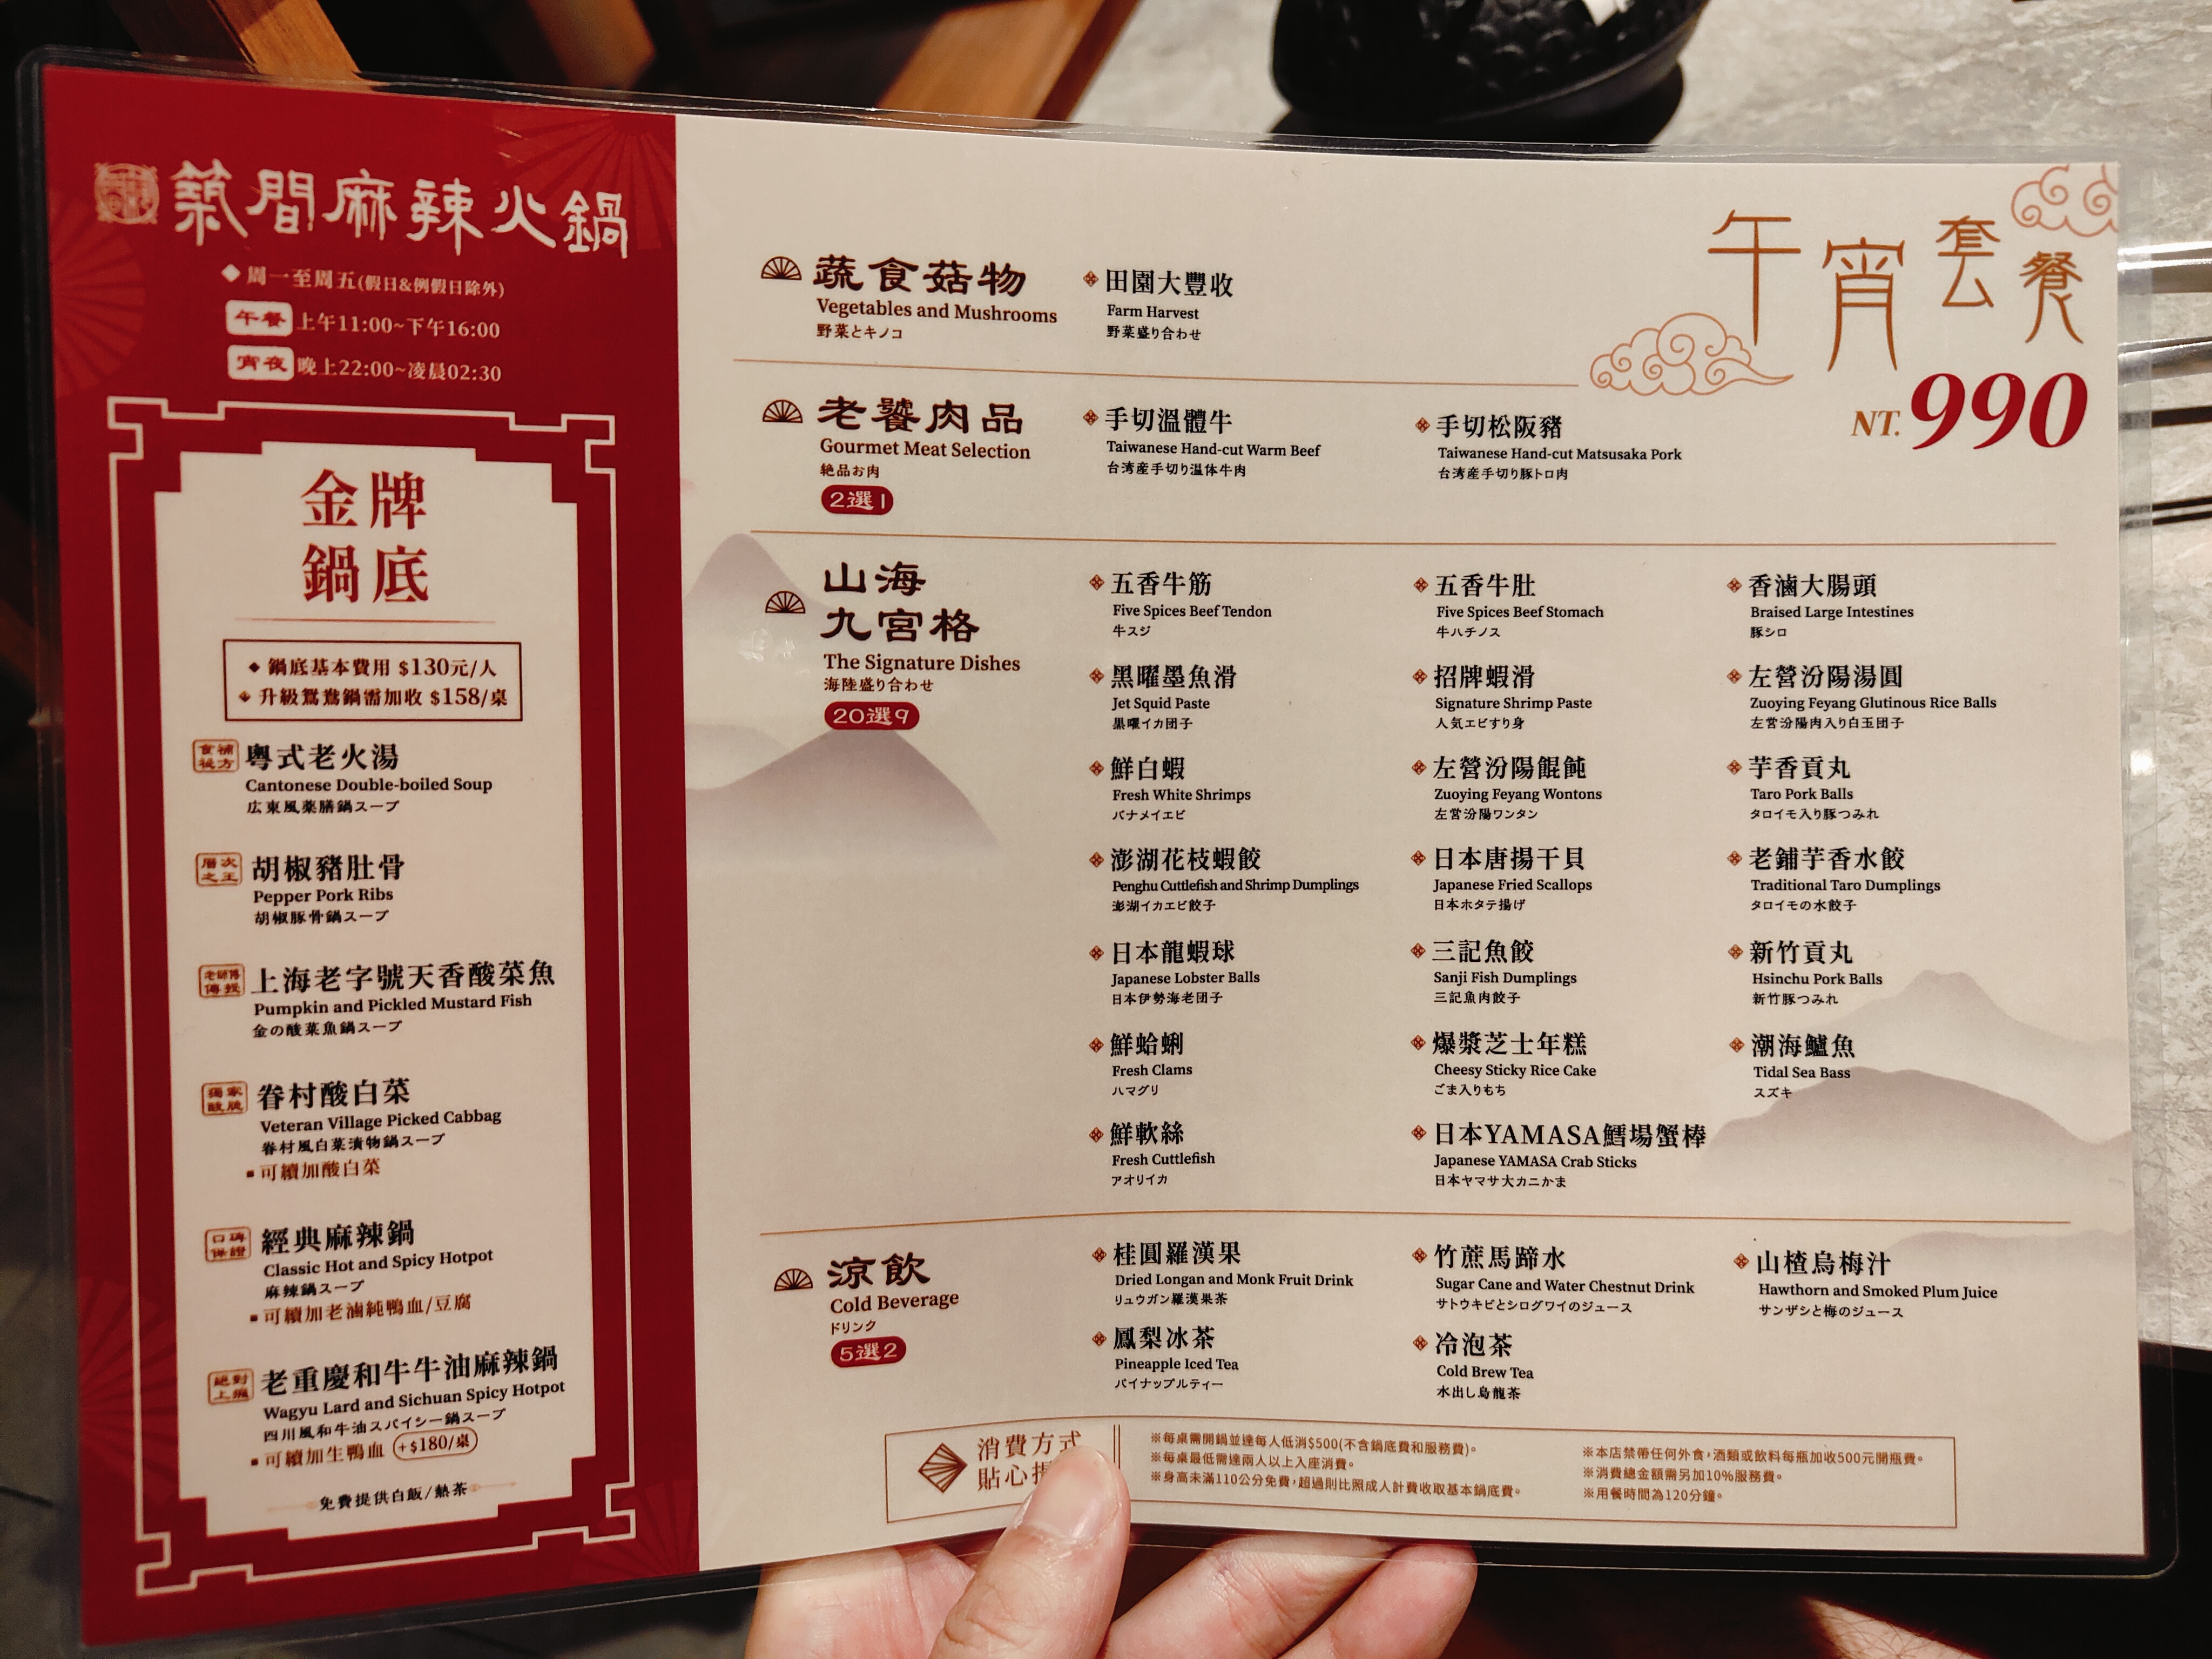 築間麻辣火鍋
◆ 周一至周五(假日&例假日除外)
午餐 上午11:00~下午16:00
宵夜 晚上22:00~凌晨02:30
金牌
鍋底
◆ 鍋底基本費用 $130元/人
◆ 升級鴛鴦鍋需加收 $158/桌
食補
秘方
粵式老火湯
Cantonese Double-boiled Soup
広東風薬膳鍋スープ
層次
之王
胡椒豬肚骨
Pepper Pork Ribs
胡椒豚骨鍋スープ
老師傅
傳授
上海老字號天香酸菜魚
Pumpkin and Pickled Mustard Fish
金の酸菜魚鍋スープ
獨家
酸脆
眷村酸白菜
Veteran Village Picked Cabbag
眷村風白菜漬物鍋スープ
▪可續加酸白菜
口碑
保證
經典麻辣鍋
Classic Hot and Spicy Hotpot
麻辣鍋スープ
▪可續加老滷純鴨血/豆腐
絕對
上癮
老重慶和牛牛油麻辣鍋
Wagyu Lard and Sichuan Spicy Hotpot
四川風和牛油スパイシー鍋スープ
▪可續加生鴨血 +$180/桌
免費提供白飯/熱茶
午宵套餐
NT.990
蔬食菇物
Vegetables and Mushrooms
野菜とキノコ
田園大豐收
Farm Harvest
野菜盛り合わせ
老饕肉品
Gourmet Meat Selection
絶品お肉
2選1
手切溫體牛
Taiwanese Hand-cut Warm Beef
台湾産手切り温体牛肉
手切松阪豬
Taiwanese Hand-cut Matsusaka Pork
台湾産手切り豚トロ肉
山海
九宮格
The Signature Dishes
海陸盛り合わせ
20選9
五香牛筋
Five Spices Beef Tendon
牛スジ
五香牛肚
Five Spices Beef Stomach
牛ハチノス
香滷大腸頭
Braised Large Intestines
豚シロ
黑曜墨魚滑
Jet Squid Paste
黒曜イカ団子
招牌蝦滑
Signature Shrimp Paste
人気エビすり身
左營汾陽湯圓
Zuoying Feyang Glutinous Rice Balls
左営汾陽肉入り白玉団子
鮮白蝦
Fresh White Shrimps
バナメイエビ
左營汾陽餛飩
Zuoying Feyang Wontons
左営汾陽ワンタン
芋香貢丸
Taro Pork Balls
タロイモ入り豚つみれ
澎湖花枝蝦餃
Penghu Cuttlefish and Shrimp Dumplings
澎湖イカエビ餃子
日本唐揚干貝
Japanese Fried Scallops
日本ホタテ揚げ
老鋪芋香水餃
Traditional Taro Dumplings
タロイモの水餃子
日本龍蝦球
Japanese Lobster Balls
日本伊勢海老団子
三記魚餃
Sanji Fish Dumplings
三記魚肉餃子
新竹貢丸
Hsinchu Pork Balls
新竹豚つみれ
鮮蛤蜊
Fresh Clams
ハマグリ
爆漿芝士年糕
Cheesy Sticky Rice Cake
ごま入りもち
潮海鱸魚
Tidal Sea Bass
スズキ
鮮軟絲
Fresh Cuttlefish
アオリイカ
日本YAMASA鱈場蟹棒
Japanese YAMASA Crab Sticks
日本ヤマサ大カニかま
涼飲
Cold Beverage
ドリンク
5選2
桂圓羅漢果
Dried Longan and Monk Fruit Drink
リュウガン羅漢果茶
竹蔗馬蹄水
Sugar Cane and Water Chestnut Drink
サトウキビとシログワイのジュース
山楂烏梅汁
Hawthorn and Smoked Plum Juice
サンザシと梅のジュース
鳳梨冰茶
Pineapple Iced Tea
パイナップルティー
冷泡茶
Cold Brew Tea
水出し烏龍茶
消費方式
貼心
※每桌需開鍋並達每人低消$500(不含鍋底費和服務費)。
※每桌最低需達兩人以上入座消費。
※身高未滿110公分免費,超過則比照成人計費收取基本鍋底費。
※本店禁帶任何外食,酒類或飲料每瓶加收500元開瓶費。
※消費總金額需另加10%服務費。
※用餐時間為120分鐘。